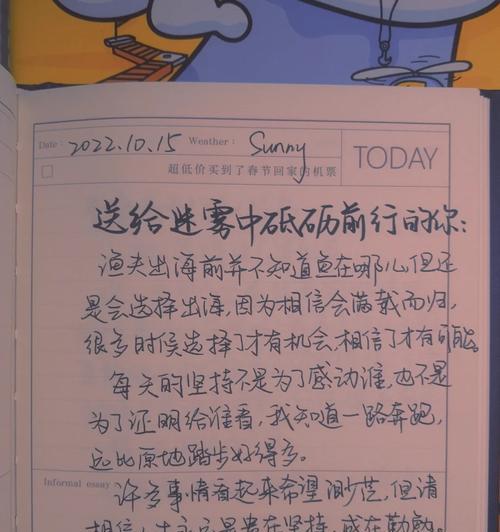 Date: 2022.10.15 Weather: Sunny
TODAY
超低价买到了春节回家的机票
送给迷雾中砥砺前行的你:
渔夫出海前并不知道鱼在哪儿但还
是会选择出海,因为相信会满载而归,
很多时候选择了才有机会,相信了才有可能。
每天的坚持不是为了感动谁,也不是
为了证明给谁看,我知道一路奔跑,
远比原地踏步好得多。
Informal essay
许多事情看起来希望渺茫,但请
相信,贵在坚持,成在勤勉